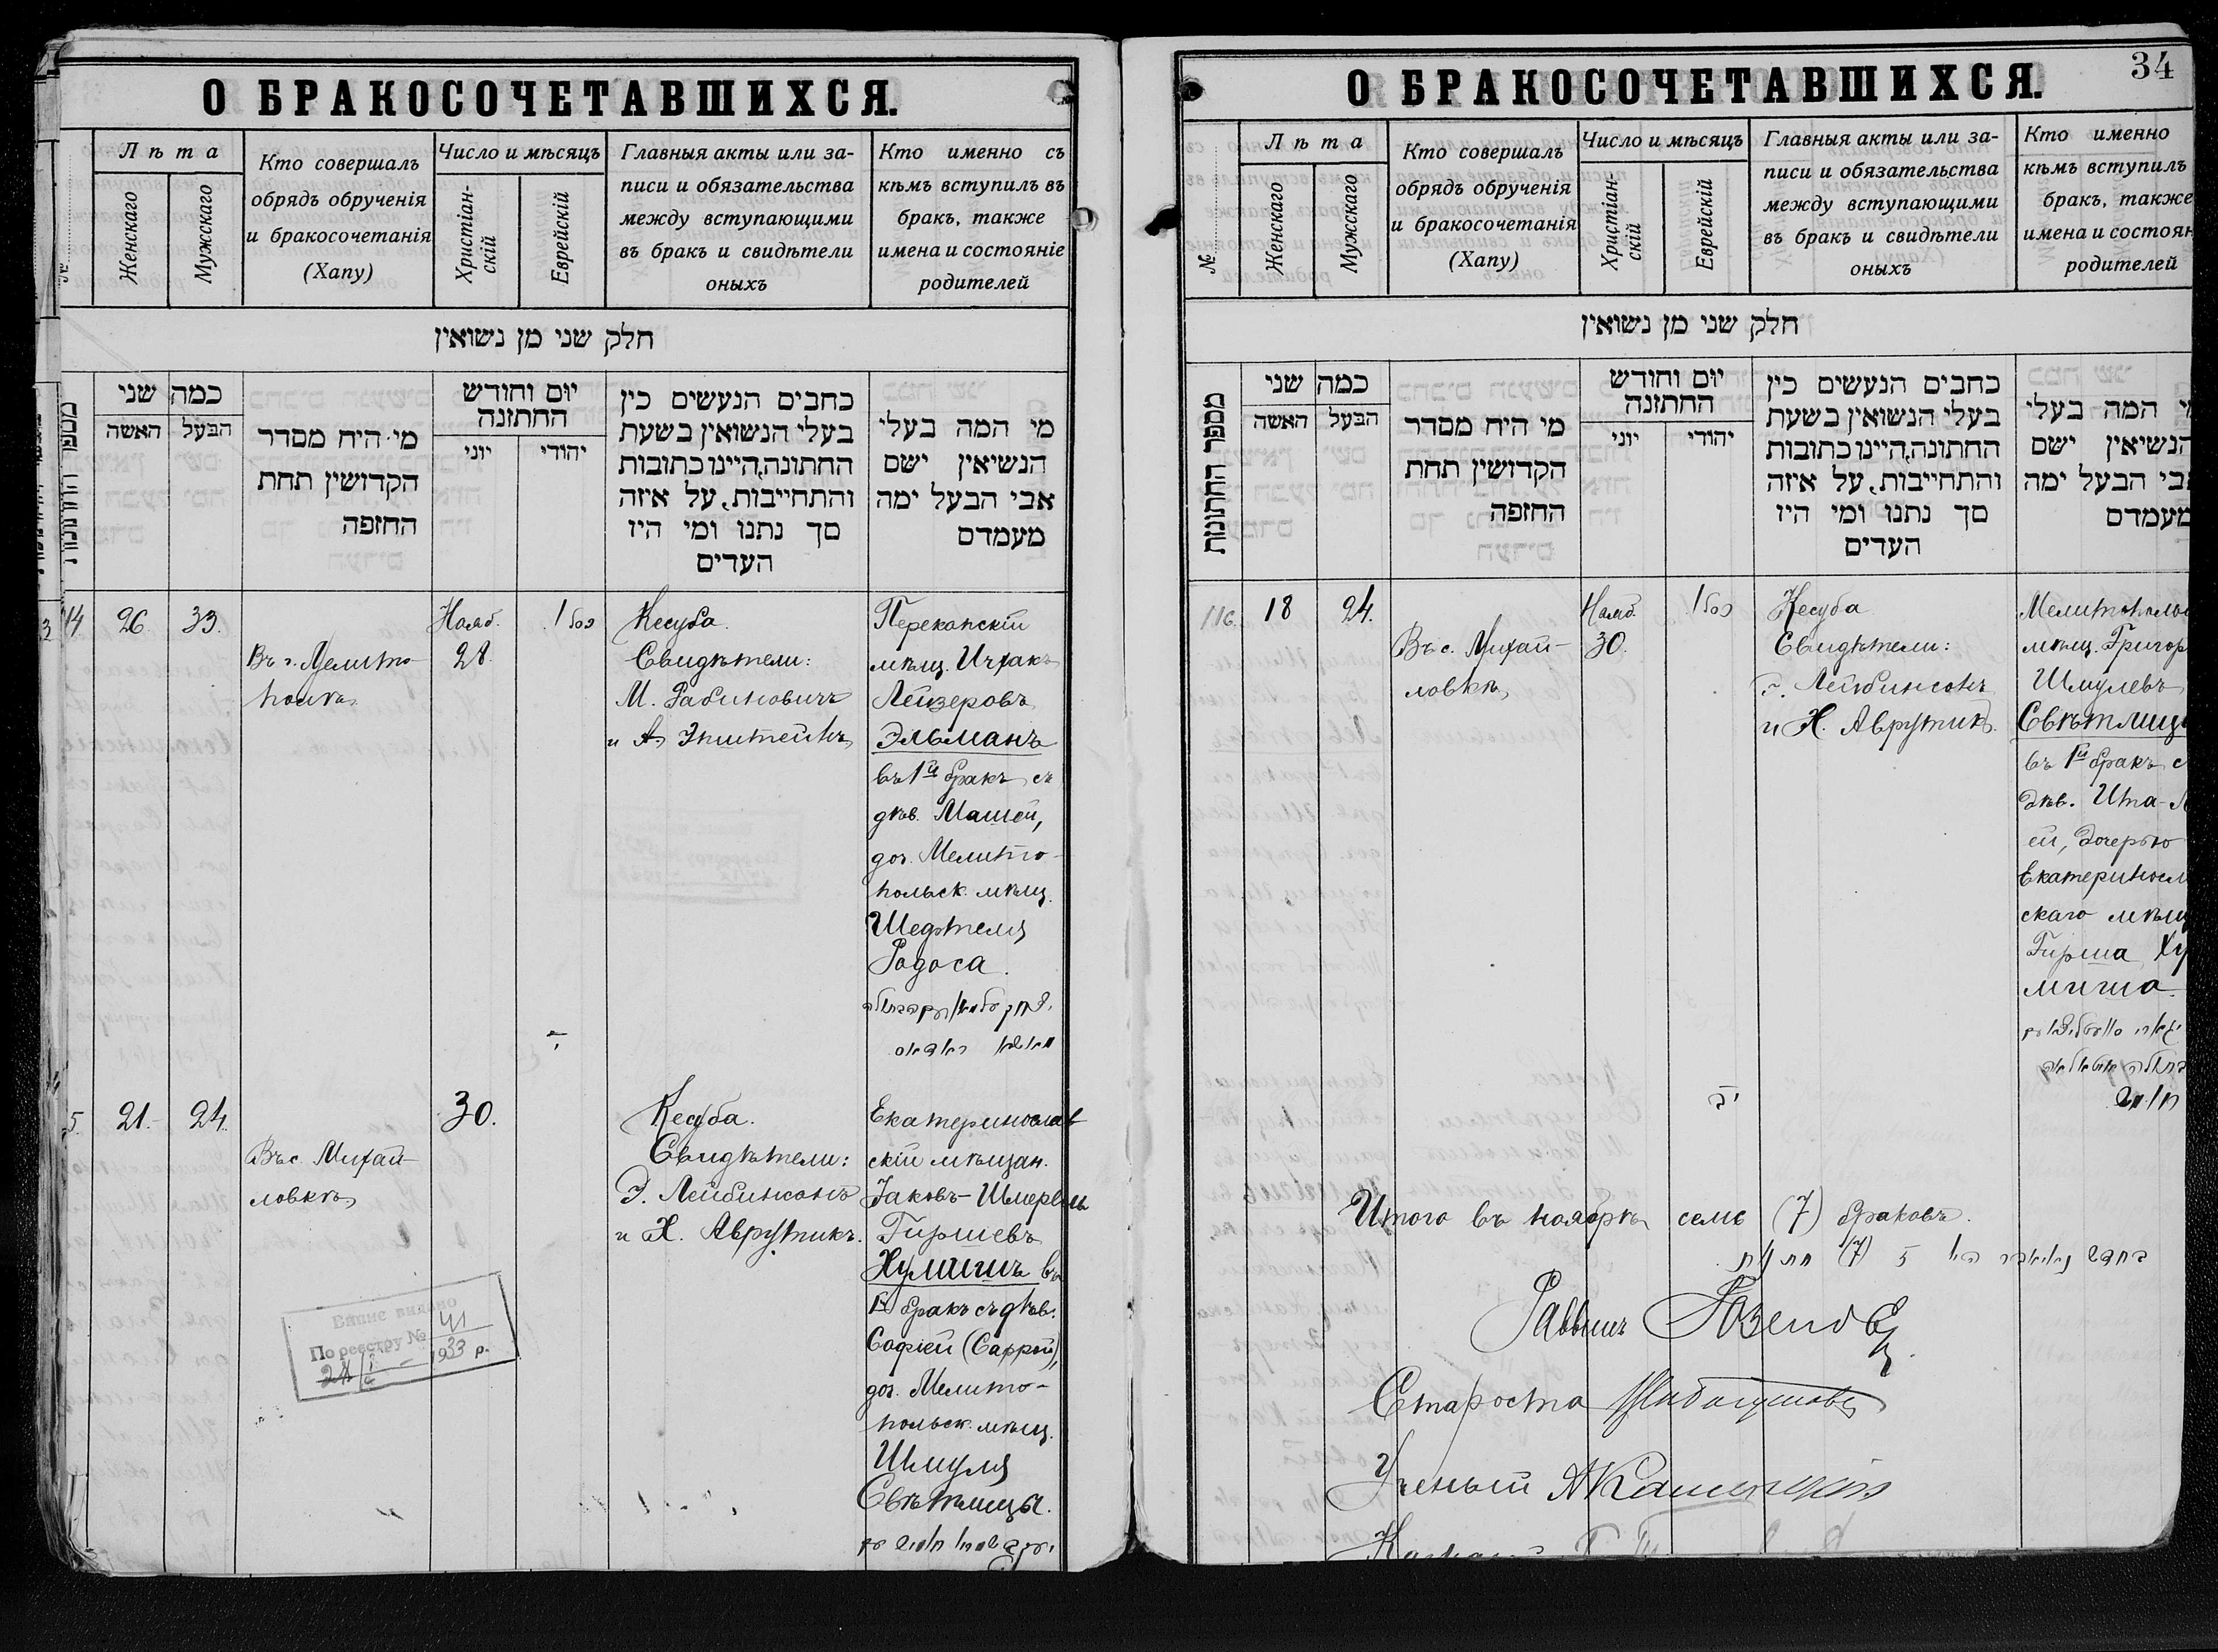 О БРАКОСОЧЕТАВШИХСЯ.
№
Лѣта
Женскаго
Мужскаго
Кто совершалъ
обрядъ обрученія
и бракосочетанія
(Хапу)
Число и мѣсяцъ
Христіан-
скій
Еврейскій
Главныя акты или за-
писи и обязательства
между вступающими
въ бракъ и свидѣтели
оныхъ
Кто именно съ
кѣмъ вступилъ въ
бракъ, также
имена и состояніе
родителей
חלק שני מן נשואין
כמה שני
האשה
הבעל
מי היח מסדר
הקדושין תחת
החופה
יום וחודש
החתונה
יוני
יהודי
כחבים הנעשים כין
בעלי הנשואין בשעת
החתונה,היינו כתובות
והתחייבות, על איזה
סך נתנו ומי היו
העדים
מי המה בעלי
הנשיאין ישם
אבי הבעל ימה
מעמדם
14
26.
33.
Въ г. Мелито-
полѣ
Нояб.
28.
Кесуба.
Свидѣтели:
М. Рабиновичъ
и А. Эпштейнъ
Перекопскій
мѣщ. Ицхакъ
Лейзеровъ
Эльманъ
въ 1й бракъ съ
дѣв. Машей,
доч. Мелито-
польск. мѣщ.
Шефтеля
Родоса.
5.
21.
24.
Въ с. Михай-
ловкѣ
30.
Кесуба.
Свидѣтели:
Э. Лейбинсонъ
и Х. Аврутикъ.
Екатеринослав
скій мѣщан.
Іаковъ-Шмерель
Гиршевъ
Хулишъ въ
1й бракъ съ дѣв.
Софіей (Саррой),
доч. Мелито-
польск. мѣщ.
Шмуля
Свѣтлицы.
Вище видано
По реєстру № 41
1933 р.
О БРАКОСОЧЕТАВШИХСЯ.
34
№
Лѣта
Женскаго
Мужскаго
Кто совершалъ
обрядъ обрученія
и бракосочетанія
(Хапу)
Число и мѣсяцъ
Христіан-
скій
Еврейскій
Главныя акты или за-
писи и обязательства
между вступающими
въ бракъ и свидѣтели
оныхъ
Кто именно
кѣмъ вступилъ
бракъ, также
имена и состоян
родителей
חלק שני מן נשואין
מספר החתונות
כמה שני
האשה
הבעל
מי היח מסדר
הקדושין תחת
החופה
יום וחודש
החתונה
יוני
יהודי
כחבים הנעשים כין
בעלי הנשואין בשעת
החתונה,היינו כתובות
והתחייבות, על איזה
סך נתנו ומי היו
העדים
י המה בעלי
הנשיאין ישם
אבי הבעל ימה
מעמדם
116.
18
24.
Въ с. Михай-
ловкѣ
Нояб.
30.
Кесуба
Свидѣтели:
Э. Лейбинсонъ
и Х. Аврутикъ.
Мелитополь
мѣщ. Григор
Шмулевъ
Свѣтлиц
въ 1й бракъ с
дѣв. Ита-
ей, дочерью
Екатериносл
скаго мѣщ
Гирша Ху
лиша.
Итого въ ноябрѣ семь (7) браковъ.
Раввинъ
Староста
Ученый А Каменецкій